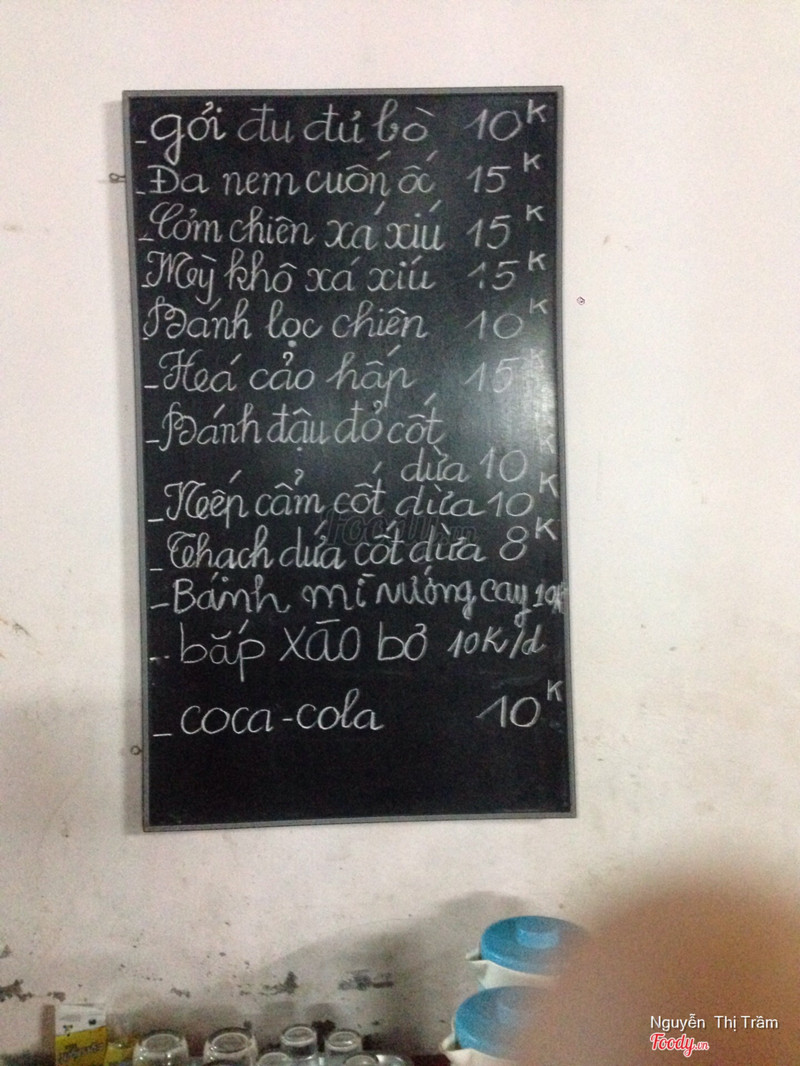 - gỏi đu đủ bò 10K
- Đa nem cuốn ốc 15K
- Cơm chiên xá xíu 15K
- Mỳ khô xá xíu 15K
- Bánh lọc chiên 10K
- Há cảo hấp 15K
- Bánh đậu đỏ cốt
dừa 10K
- Nếp cẩm cốt dừa 10K
- Thạch dứa cốt dừa 8K
- Bánh mì nướng cay 10K
- bắp XÀO bơ 10K/d
- coca-cola 10K
Foody.vn
Nguyễn Thị Trầm
Foody.vn